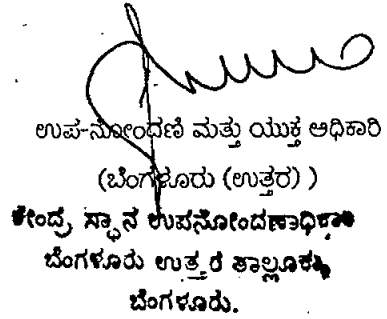 ಉಪ-ನೋಂದಣಿ ಮತ್ತು ಯುಕ್ತ ಅಧಿಕಾರಿ
(ಬೆಂಗಳೂರು (ಉತ್ತರ) )
ಕೇಂದ್ರ ಸ್ಥಾನ ಉಪನೋಂದಣಾಧಿಕಾರಿ
ಬೆಂಗಳೂರು ಉತ್ತರ ತಾಲ್ಲೂಕು
ಬೆಂಗಳೂರು.